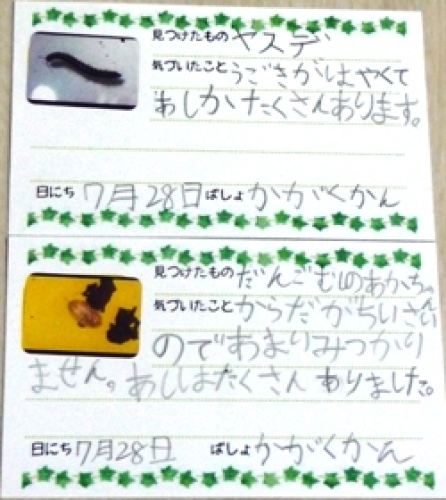 見つけたもの ヤスデ
気づいたこと うごきがはやくて
あしがたくさんあります。
日にち 7月28日 ばしょ かがくかん
見つけたもの だんごむしのあかちゃん
気づいたこと からだがちいさい
のであまりみつかり
ません。あしはたくさんありました。
日にち 7月28日 ばしょ かがくかん